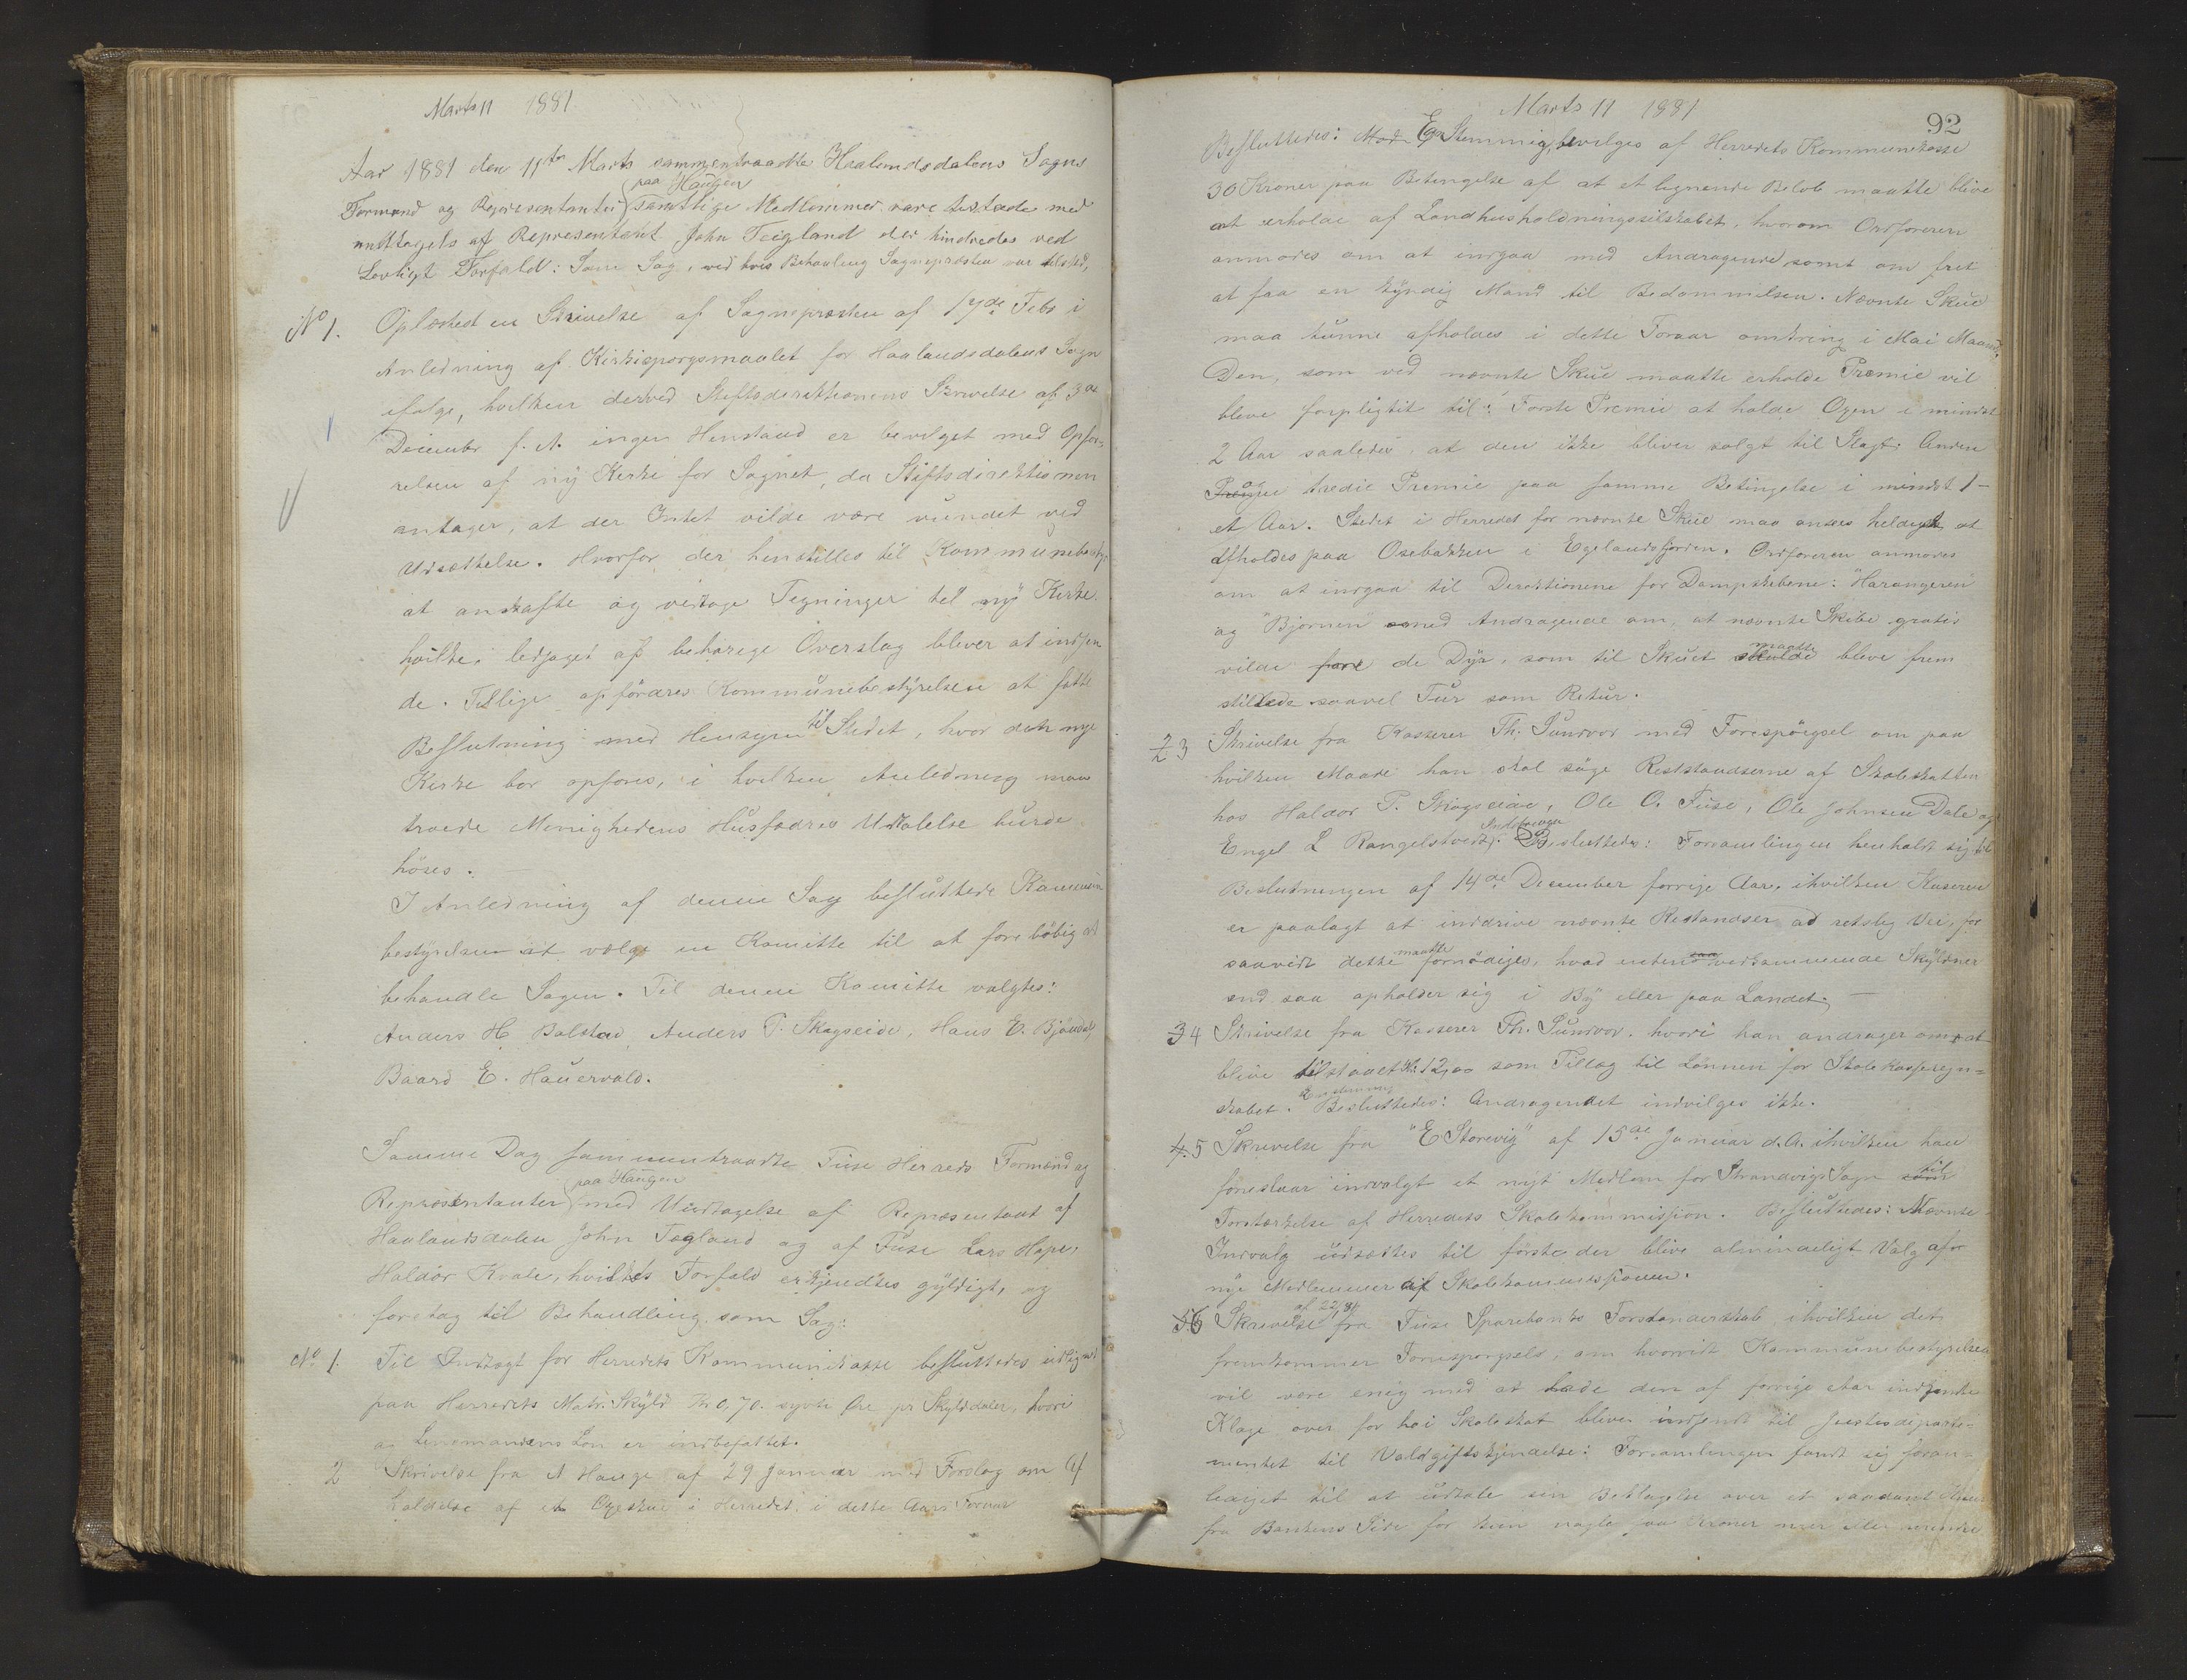 Marts 11 1881
Aar 1881 den 11te Marts sammentraadte Haalandsdalens Sogns
Formænd og Repræsentanter paa Haugen samtlige Medlemmer vare tilstæde med
undtagels af Representant John Teigland der hindredes ved
Lovligt Forfald: Som Sag, ved hvis Behanling Sognepræsten var tilsted,
No 1. Oplæstest en Skrivelse af Sognepræsten af 17de Febr i
Anledning af Kirkesporgsmaalet for Haalandsdalens Sogn
ifølge, hvilken derved Stiftsdirektionens Skrivelse af 3de
December f. A. ingen Henstand er bevilget med Opfø-
relsen af ny Kirke for Sognet, da Stiftsdirektionen
antager, at der Intet vilde være vundet ved
Udsættelse. Hvorfor der henstilles til Kommunebesty
at anskaffe og vedtage Tegninger til ny Kirke
hvilke, ledsaget af behørige Overslag bliver at indsen
de. Tillige opfordres Kommunebestyrelsen at fatte
Beslutning med Hensyn til Stedet, hvor den nye
Kirke bør opføres, i hvilken Anledning man
troede Menighedens Husfædres Udtalelse burde
høres.
I Anledning af denne Sag besluttede Kommune
bestyrelsen at vælge en Komitte til at foreløbig at
behandle Sagen. Til denne Komitte valgtes:
Anders H. Bolstad, Anders T. Skogseide, Hans E. Bjöndal,
Baard E. Hauervald.
Samme Dag sammentraadte Fuse Herreds Formænd og
Repræsentanter paa Haugen med Undtagelse af Repræsentant af
Haalandsdalen John Tegland og af Fuse Lars Hope,
Haldor Kvale, hvilkes Forfald erkjendtes gyldigt, og
foretog til Behandling som Sag:
No 1. Til Indtægt for Herredets Kommunekasse besluttedes udlignet
paa Herredets Matr. Skyld Kr 0,70. sytti Øre pr Skylddaler, hvori
og Lensmandens Løn er indbefattet.
2 Skrivelse fra A Hauge af 29 Januar med Forslag om Af
holdelse af et Oxeskue i Herredet i dette Aars Foraar
Marts 11 1881
92
Besluttedes: Mod Enstemmig, bevilges af Herredets Kommunekasse
30 Kroner paa Betingelse af at et lignende Beløb maatte blive
at erholde af Landhusholdningsselskabet, hvorom Ordføreren
anmodes om at indgaa med Andragende samt om frit
at faa en kyndig Mand til Bedømmelsen. Nævnte Skue
maa kunne afholdes i dette Foraar omkring i Mai Maaned.
Den, som ved nævnte Skue maatte erholde Premie vil
bleve forpligtet til: Første Premie at holde Oxen i mindst
2 Aar saaledes, at den ikke bliver solgt til Slagt. Anden
og tredie Premie paa samme Betingelse i mindst 1 -
et Aar. Stedet i Herredet for nævnte Skue maa ansees heldigst at
afholdes paa Osebakken i Egelandsfjorden. Ordføreren anmodes
om at indgaa til Direktionene for Dampskibene: "Harangeren"
og "Bjørnen" med Andragende om, at nævnte Skibe gratis
vilde føre de Dyr, som til Skuet skulde maatte bleve frem
stillede saavel Tur som Retur.
2 3 Skrivelse fra Kasserer Th. Sundvor med Forespörgsel om paa
hvilken Maade han skal søge Reststandserne af Skoleskatten
hos Haldor T. Skogseide, Ole O. Fuse, Ole Johnsen Dale og
Engel L Rangelstvedt. Besluttedes: Forsamlingen henholdt sig til
Beslutningen af 14de December forrige Aar, ihvilken Kassereren
er paalagt at inddrive nævnte Restandser ad retslig Vei, for
saavidt dette maatte fornødiges, hvad enten saa vedkommende Skyldner
end saa opholder sig i By eller paa Landet. -
3 4 Skrivelse fra Kasserer Th. Sundvor, hvori han andrager om at
blive tilstaaet Kr. 12,00 som Tillæg til Lønnen for Skolekasseregn=
skabet. Enstemmig Besluttedes: Andragendet indvilges ikke.
4. 5 Skrivelse fra "E Storevig" af 15de Januar d. A. ihvilken han
foreslaar indvalgt et nyt Medlem for Strandvigs Sogn til
Forstærkelse af Herredets Skolekommission. Besluttedes: Nævnte
Indvalg udsættes til første der blive almindeligt Valg af
nye Medlemmer af Skolekommissionen.
5 6 Skrivelse af 22/2 81 fra Fuse Sparebanks Forstanderskab ihvilken det
fremkommer Forespørgsels, om hvorvidt Kommunebestyrelsen
vil være enig med at lade den af forrige Aar indsendte
Klage over for høi Skoleskat blive indsendt til Justisdeparte=
mentet til Voldgiftskjendelse: Forsamlingen fandt sig foran=
lediget til at udtale sin Beklagelse over et saadant
fra Bankens Side for kun nogle faa Kroner mer eller mindre